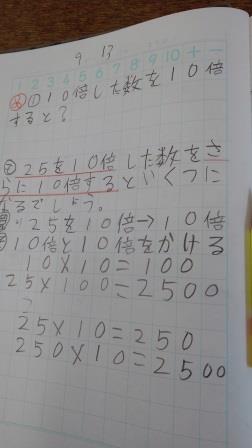 9 13
1 2 3 4 5 6 7 8 9 10 + −
め ① 10倍した数を10倍
すると？
② 25を10倍した数をさ
らに10倍するといくつに
なるでしょう。
25を10倍→10倍
10倍と10倍をかける
10×10=100
25×100=2500
25×10=250
250×10=2500